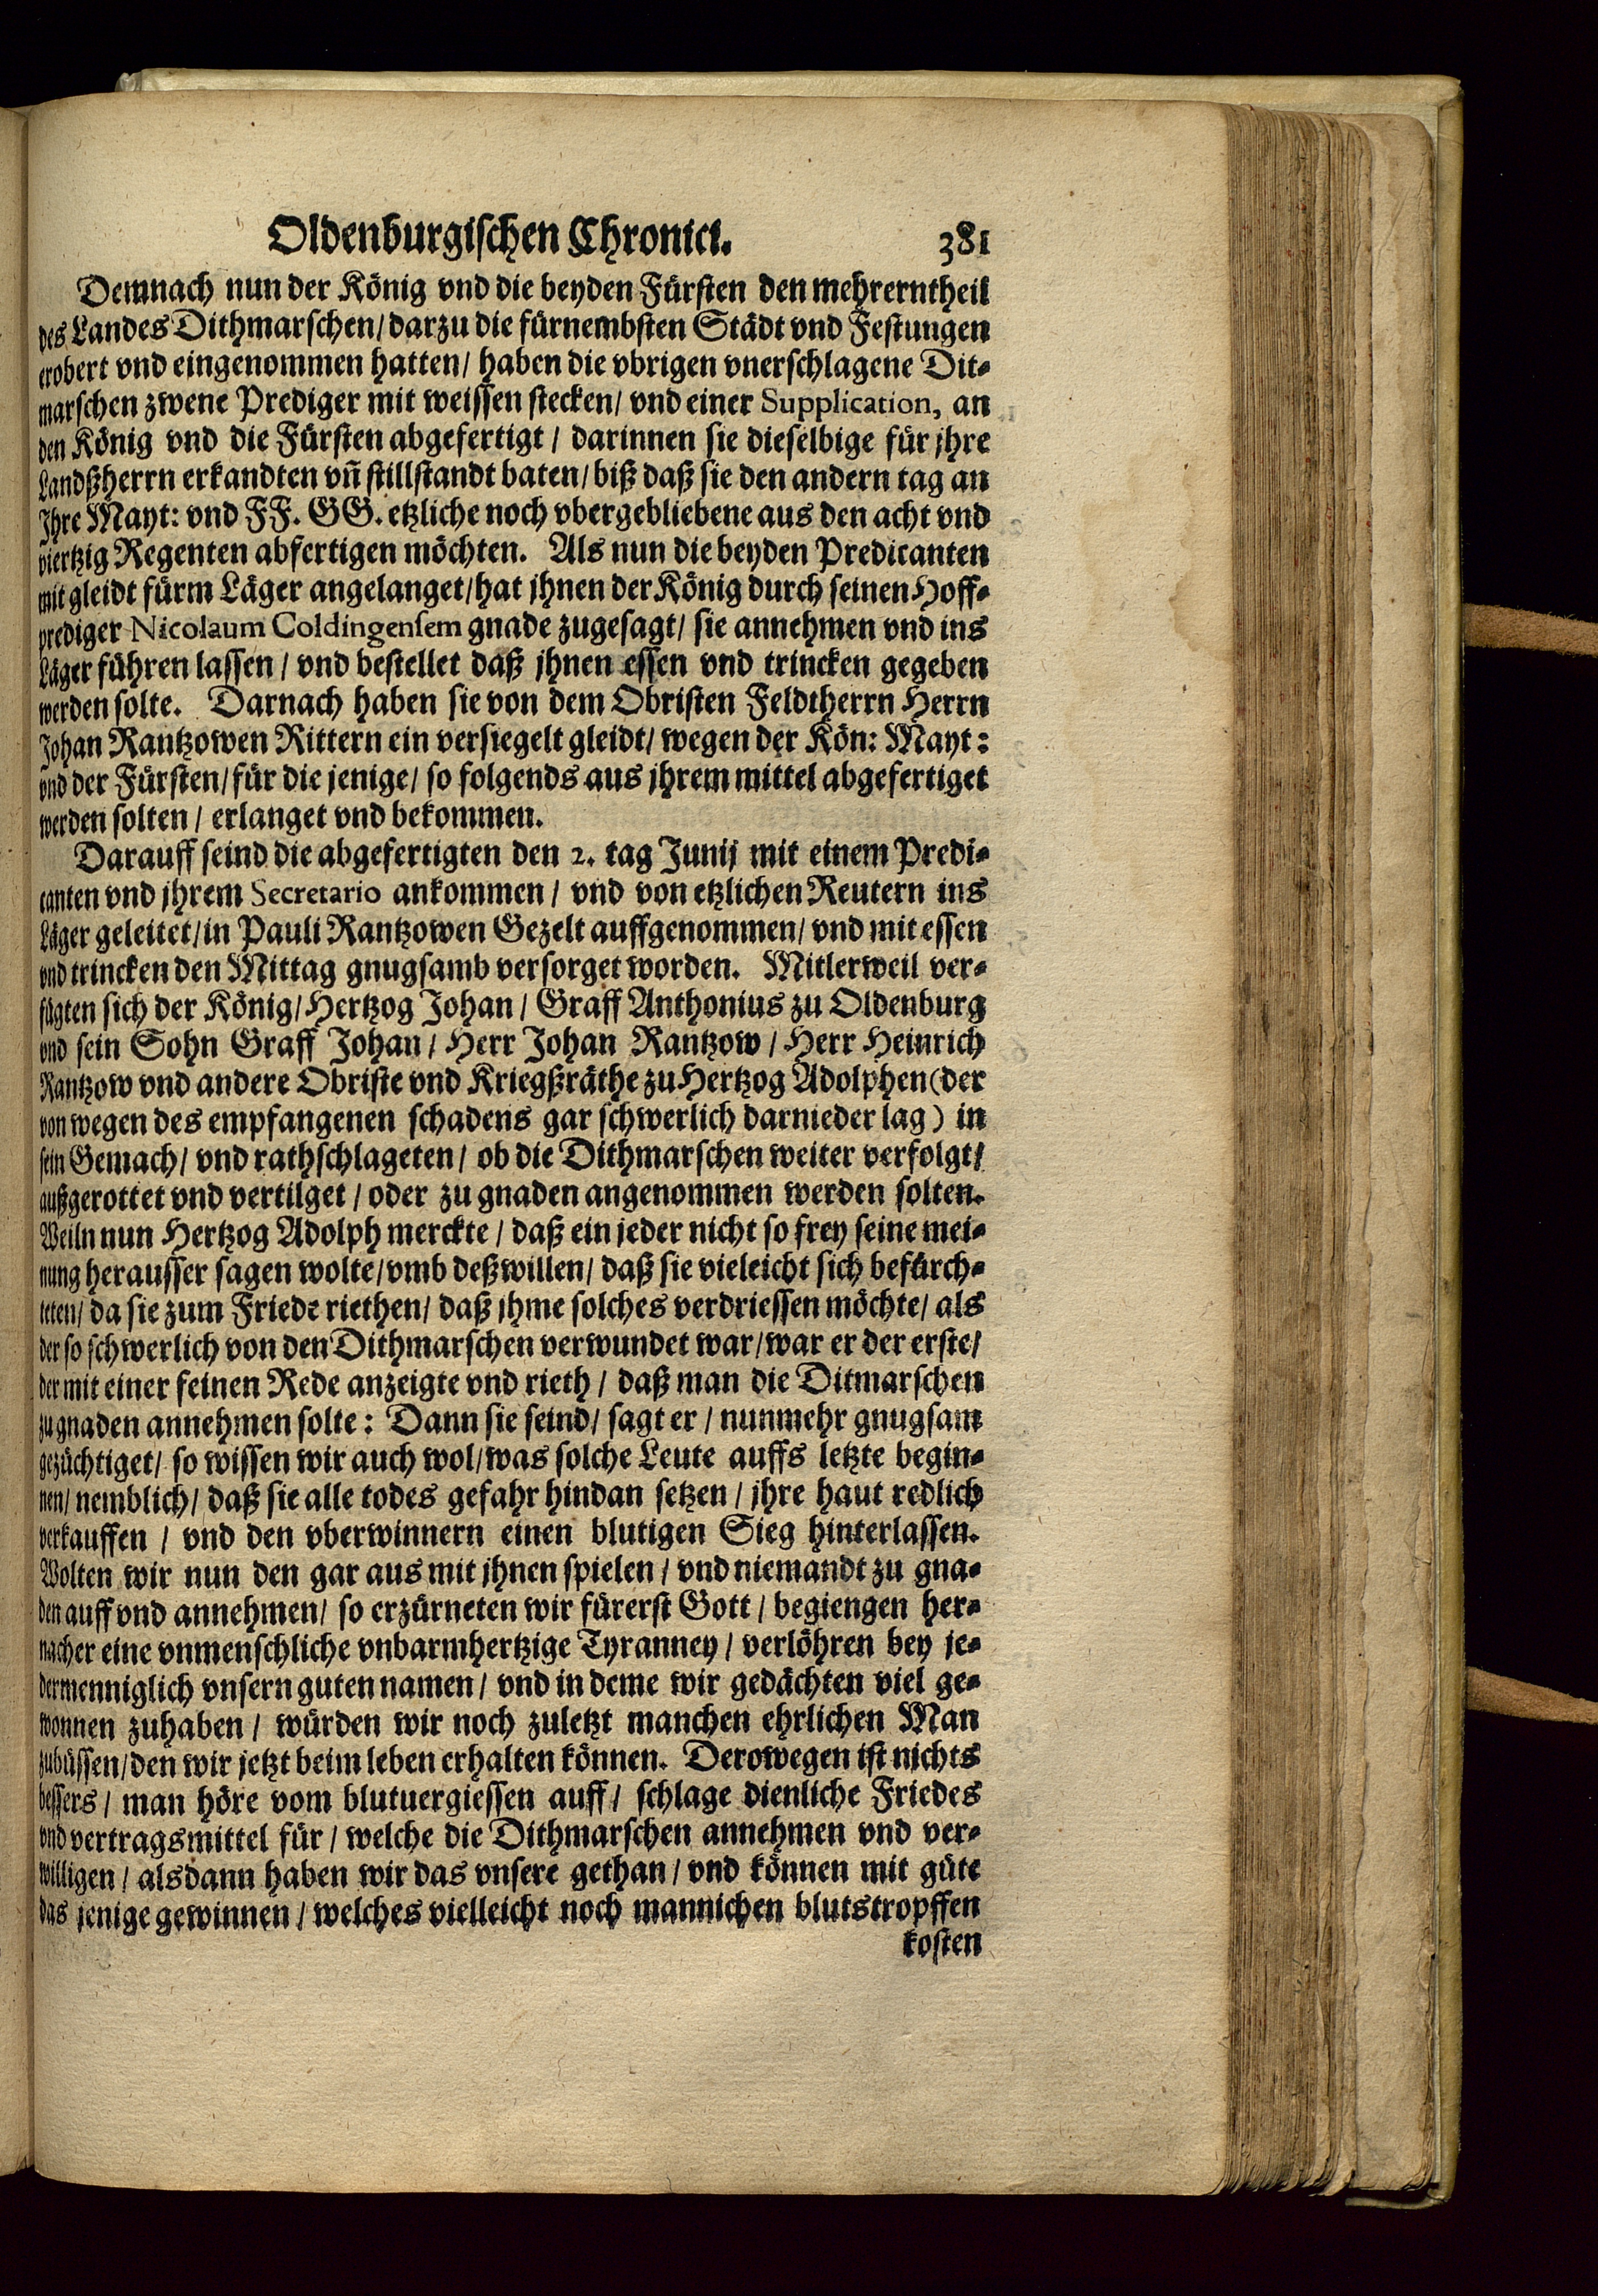 Oldenburgischen Chronici. 381
Demnach nun der König vnd die beyden Fürsten den mehrerntheil
des Landes Dithmarschen/ darzu die fürnembsten Städt vnd Festungen
erobert vnd eingenommen hatten/ haben die vbrigen vnerschlagene Dit-
marschen zwene Prediger mit weissen stecken/ vnd einer Supplication, an
den König vnd die Fürsten abgefertigt/ darinnen sie dieselbige für jhre
Landßherrn erkandten vñ stillstandt baten/ biß daß sie den andern tag an
Jhre Mayt: vnd FF. GG. etzliche noch vbergebliebene aus den acht vnd
viertzig Regenten abfertigen möchten. Als nun die beyden Predicanten
mit gleidt fürm Läger angelanget/ hat jhnen der König durch seinen Hoff-
prediger Nicolaum Coldingensem gnade zugesagt/ sie annehmen vnd ins
Läger führen lassen/ vnd bestellet daß jhnen essen vnd trincken gegeben
werden solte. Darnach haben sie von dem Obristen Feldtherrn Herrn
Johan Rantzowen Rittern ein versiegelt gleidt/ wegen der Kön: Mayt:
vnd der Fürsten/ für die jenige/ so folgends aus jhrem mittel abgefertiget
werden solten/ erlanget vnd bekommen.
Darauff seind die abgefertigten den 2. tag Junij mit einem Predi-
canten vnd jhrem Secretario ankommen/ vnd von etzlichen Reutern ins
Läger geleitet/ in Pauli Rantzowen Gezelt auffgenommen/ vnd mit essen
vnd trincken den Mittag gnugsamb versorget worden. Mitlerweil ver-
fügten sich der König/ Hertzog Johan/ Graff Anthonius zu Oldenburg
vnd sein Sohn Graff Johan/ Herr Johan Rantzow/ Herr Heinrich
Rantzow vnd andere Obriste vnd Kriegßräthe zu Hertzog Adolphen (der
von wegen des empfangenen schadens gar schwerlich darnieder lag) in
sein Gemach/ vnd rathschlageten/ ob die Dithmarschen weiter verfolgt/
außgerottet vnd vertilget/ oder zu gnaden angenommen werden solten.
Weiln nun Hertzog Adolph merckte/ daß ein jeder nicht so frey seine mei-
nung herausser sagen wolte/ vmb deßwillen/ daß sie vieleicht sich befürch-
teten/ da sie zum Friede riethen/ daß jhme solches verdriessen möchte/ als
der so schwerlich von den Dithmarschen verwundet war/ war er der erste/
der mit einer feinen Rede anzeigte vnd rieth/ daß man die Ditmarschen
zu gnaden annehmen solte: Dann sie seind/ sagt er/ nunmehr gnugsam
gezüchtiget/ so wissen wir auch wol/ was solche Leute auffs letzte begin-
nen/ nemblich/ daß sie alle todes gefahr hindan setzen/ jhre haut redlich
verkauffen/ vnd den vberwinnern einen blutigen Sieg hinterlassen.
Wolten wir nun den gar aus mit jhnen spielen/ vnd niemandt zu gna-
den auff vnd annehmen/ so erzürneten wir fürerst Gott/ begiengen her-
nacher eine vnmenschliche vnbarmhertzige Tyranney/ verlöhren bey je-
dermenniglich vnsern guten namen/ vnd in deme wir gedächten viel ge-
wonnen zuhaben/ würden wir noch zuletzt manchen ehrlichen Man
zubüssen/ den wir jetzt beim leben erhalten können. Derowegen ist nichts
bessers/ man höre vom blutuergiessen auff/ schlage dienliche Friedes
vnd vertragsmittel für/ welche die Dithmarschen annehmen vnd ver-
willigen/ alsdann haben wir das vnsere gethan/ vnd können mit güte
das jenige gewinnen/ welches vielleicht noch mannichen blutstropffen
kosten